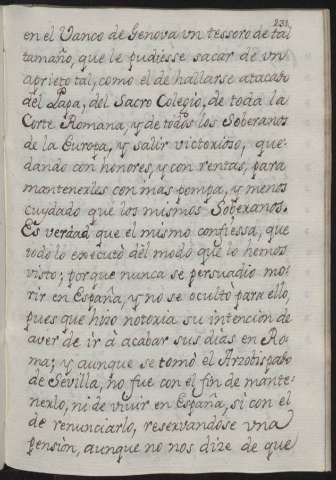 231
en el Vanco de Genova vn tessoro de tal
tamaño, que le pudiesse sacar de vn
aprieto tal, como el de hallarse atacado
del Papa, del Sacro Colegio, de toda la
Corte Romana, y de todos los Soberanos
de la Europa, y salir victorioso, que-
dando con honores, y con rentas, para
mantenerles con mas pompa, y menos
cuydado que los mismos Soberanos.
Es verdad que el mismo confiessa, que
todo lo executò del modo que lo hemos
visto; porque nunca se persuadio mo-
rir en España, y no se ocultò para ello,
pues que hizo notoria su intencion de
aver de ir à acabar sus dias en Ro-
ma; y aunque se tomò el Arzobispado
de Sevilla, no fue con el fin de mante-
nerlo, ni de vivir en España, si con el
de renunciarlo, reservandose vna
pension, aunque no nos dize de que